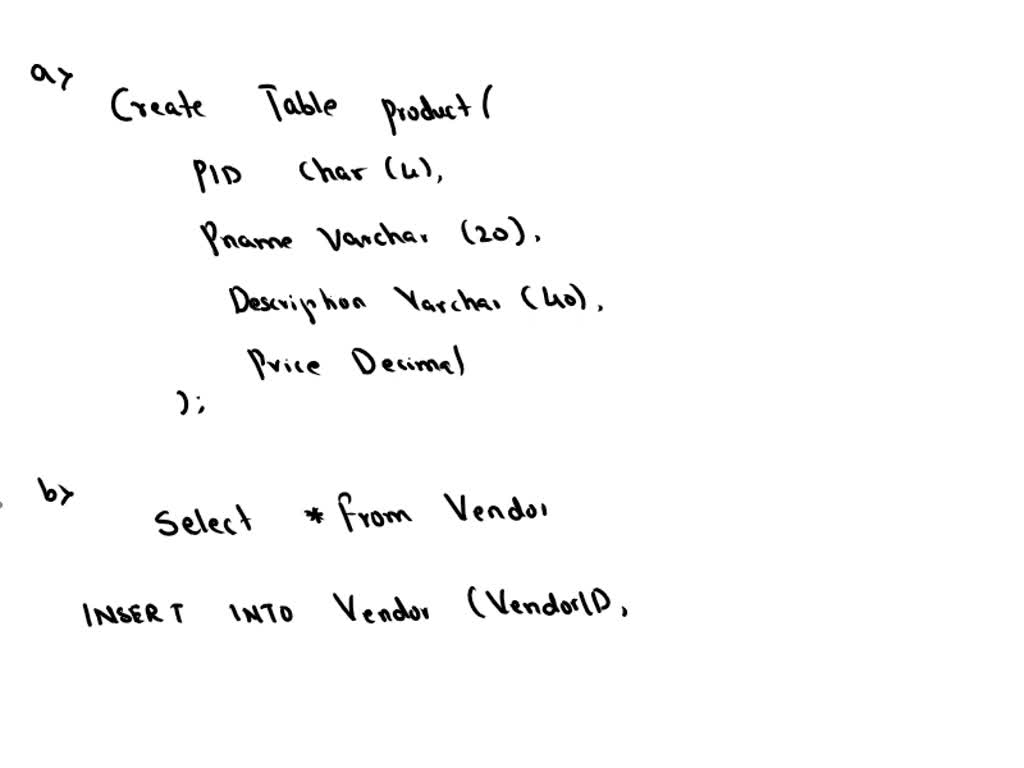 a>
Create Table product(
PID Char (4),
Pname Varchar (20),
Description Varchar (40),
Price Decimal
);
b>
Select * from Vendor
INSERT INTO Vendor (VendorID,